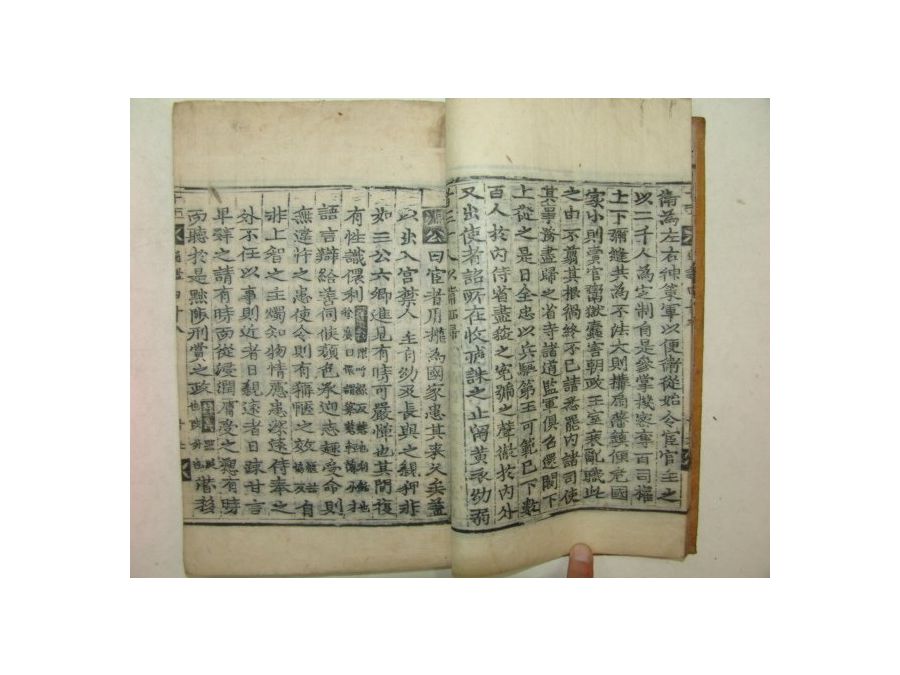 衛為左右神策軍以便衛從始令宦官主之
以二千人為定制自是參掌機密奪百司權
上下彌縫共為不法大則構扇藩鎮傾危國
家小則賣官鬻獄蠹害朝政王室衰亂職此
之由不翦其根禍終不已請悉罷內諸司使
其事務盡歸之省寺諸道監軍俱召還闕下
上從之是日全忠以兵驅第五可範已下數
百人於內侍省盡殺之冤號之聲徹於內外
又出使者詔所在收捕誅之止留黃衣幼弱
三十人以備灑掃
溫公曰宦者用權為國家患其來久矣蓋
以出入宮禁人主自幼及長與之親狎非
如三公六卿進見有時可嚴憚也其間復
有性識儇利
語言辯給善伺候顏色承迎志趣受命則
無違忤之患使令則有稱愜之效 自
非上智之主燭知物情慮患深遠侍奉之
外不任以事則近者日親遠者日疎甘言
卑辭之請有時而從浸潤膚受之愬有時
而聽於是黜陟刑賞之政 潛移